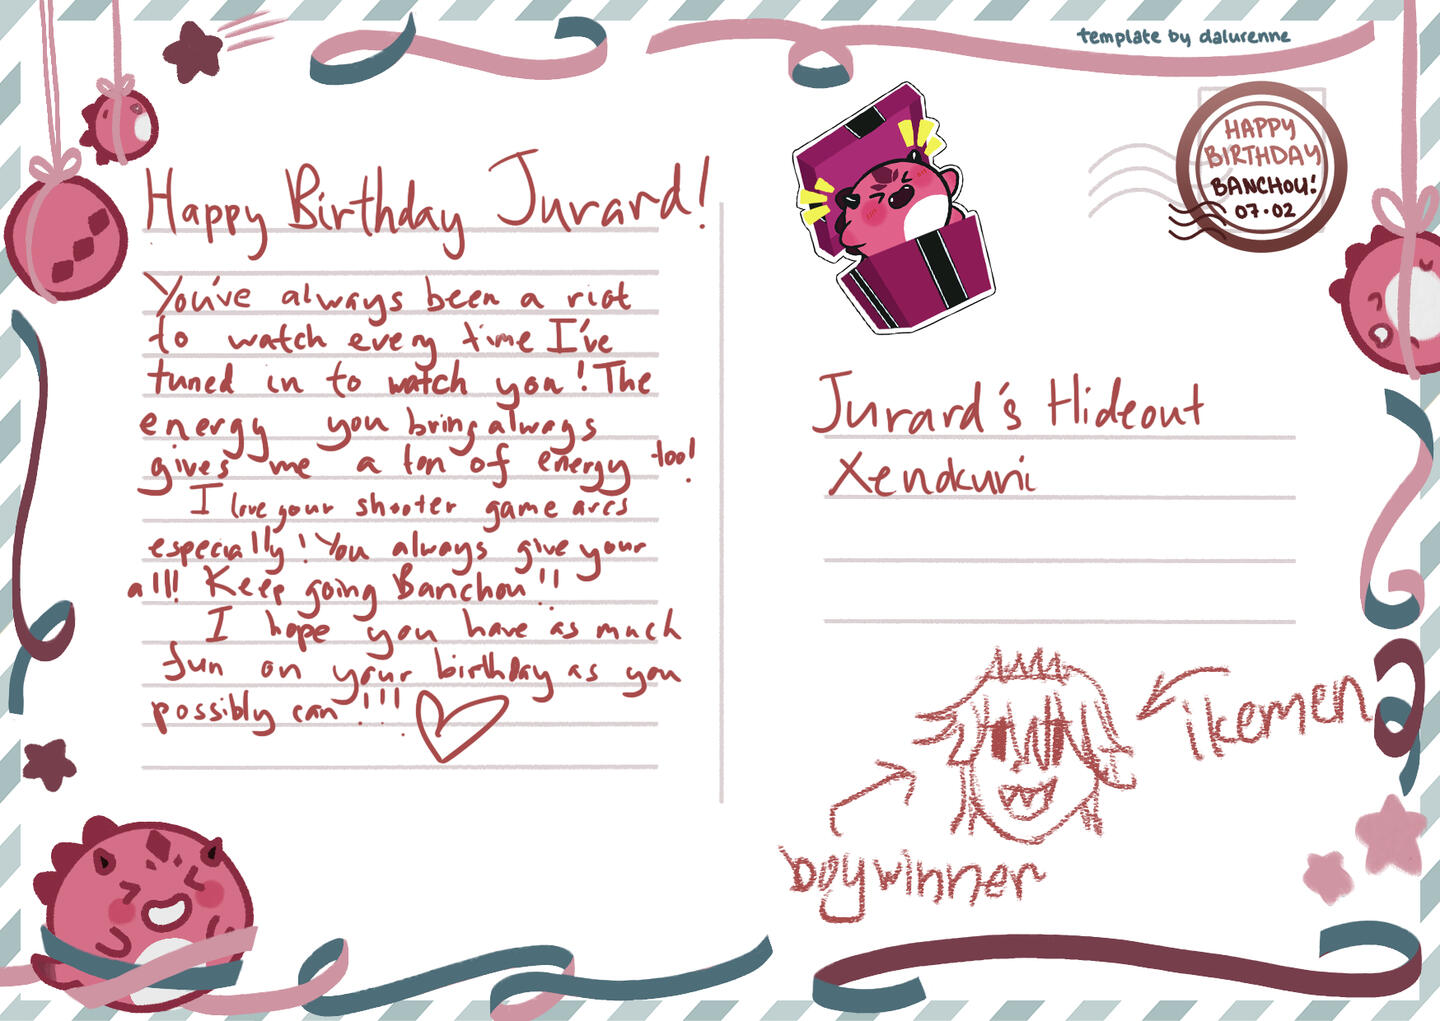 template by dalurenne
HAPPY
BIRTHDAY
BANCHOU!
07.02
Happy Birthday Jurard!
You've always been a riot
to watch every time I've
tuned in to watch you! The
energy you bring always
gives me a ton of energy too!
I love your shooter game arcs
especially! You always give your
all!! Keep going Banchou!!
I hope you have as much
fun on your birthday as you
possibly can!!!
Jurard's Hideout
Xenokuni
ikemen
boywinner